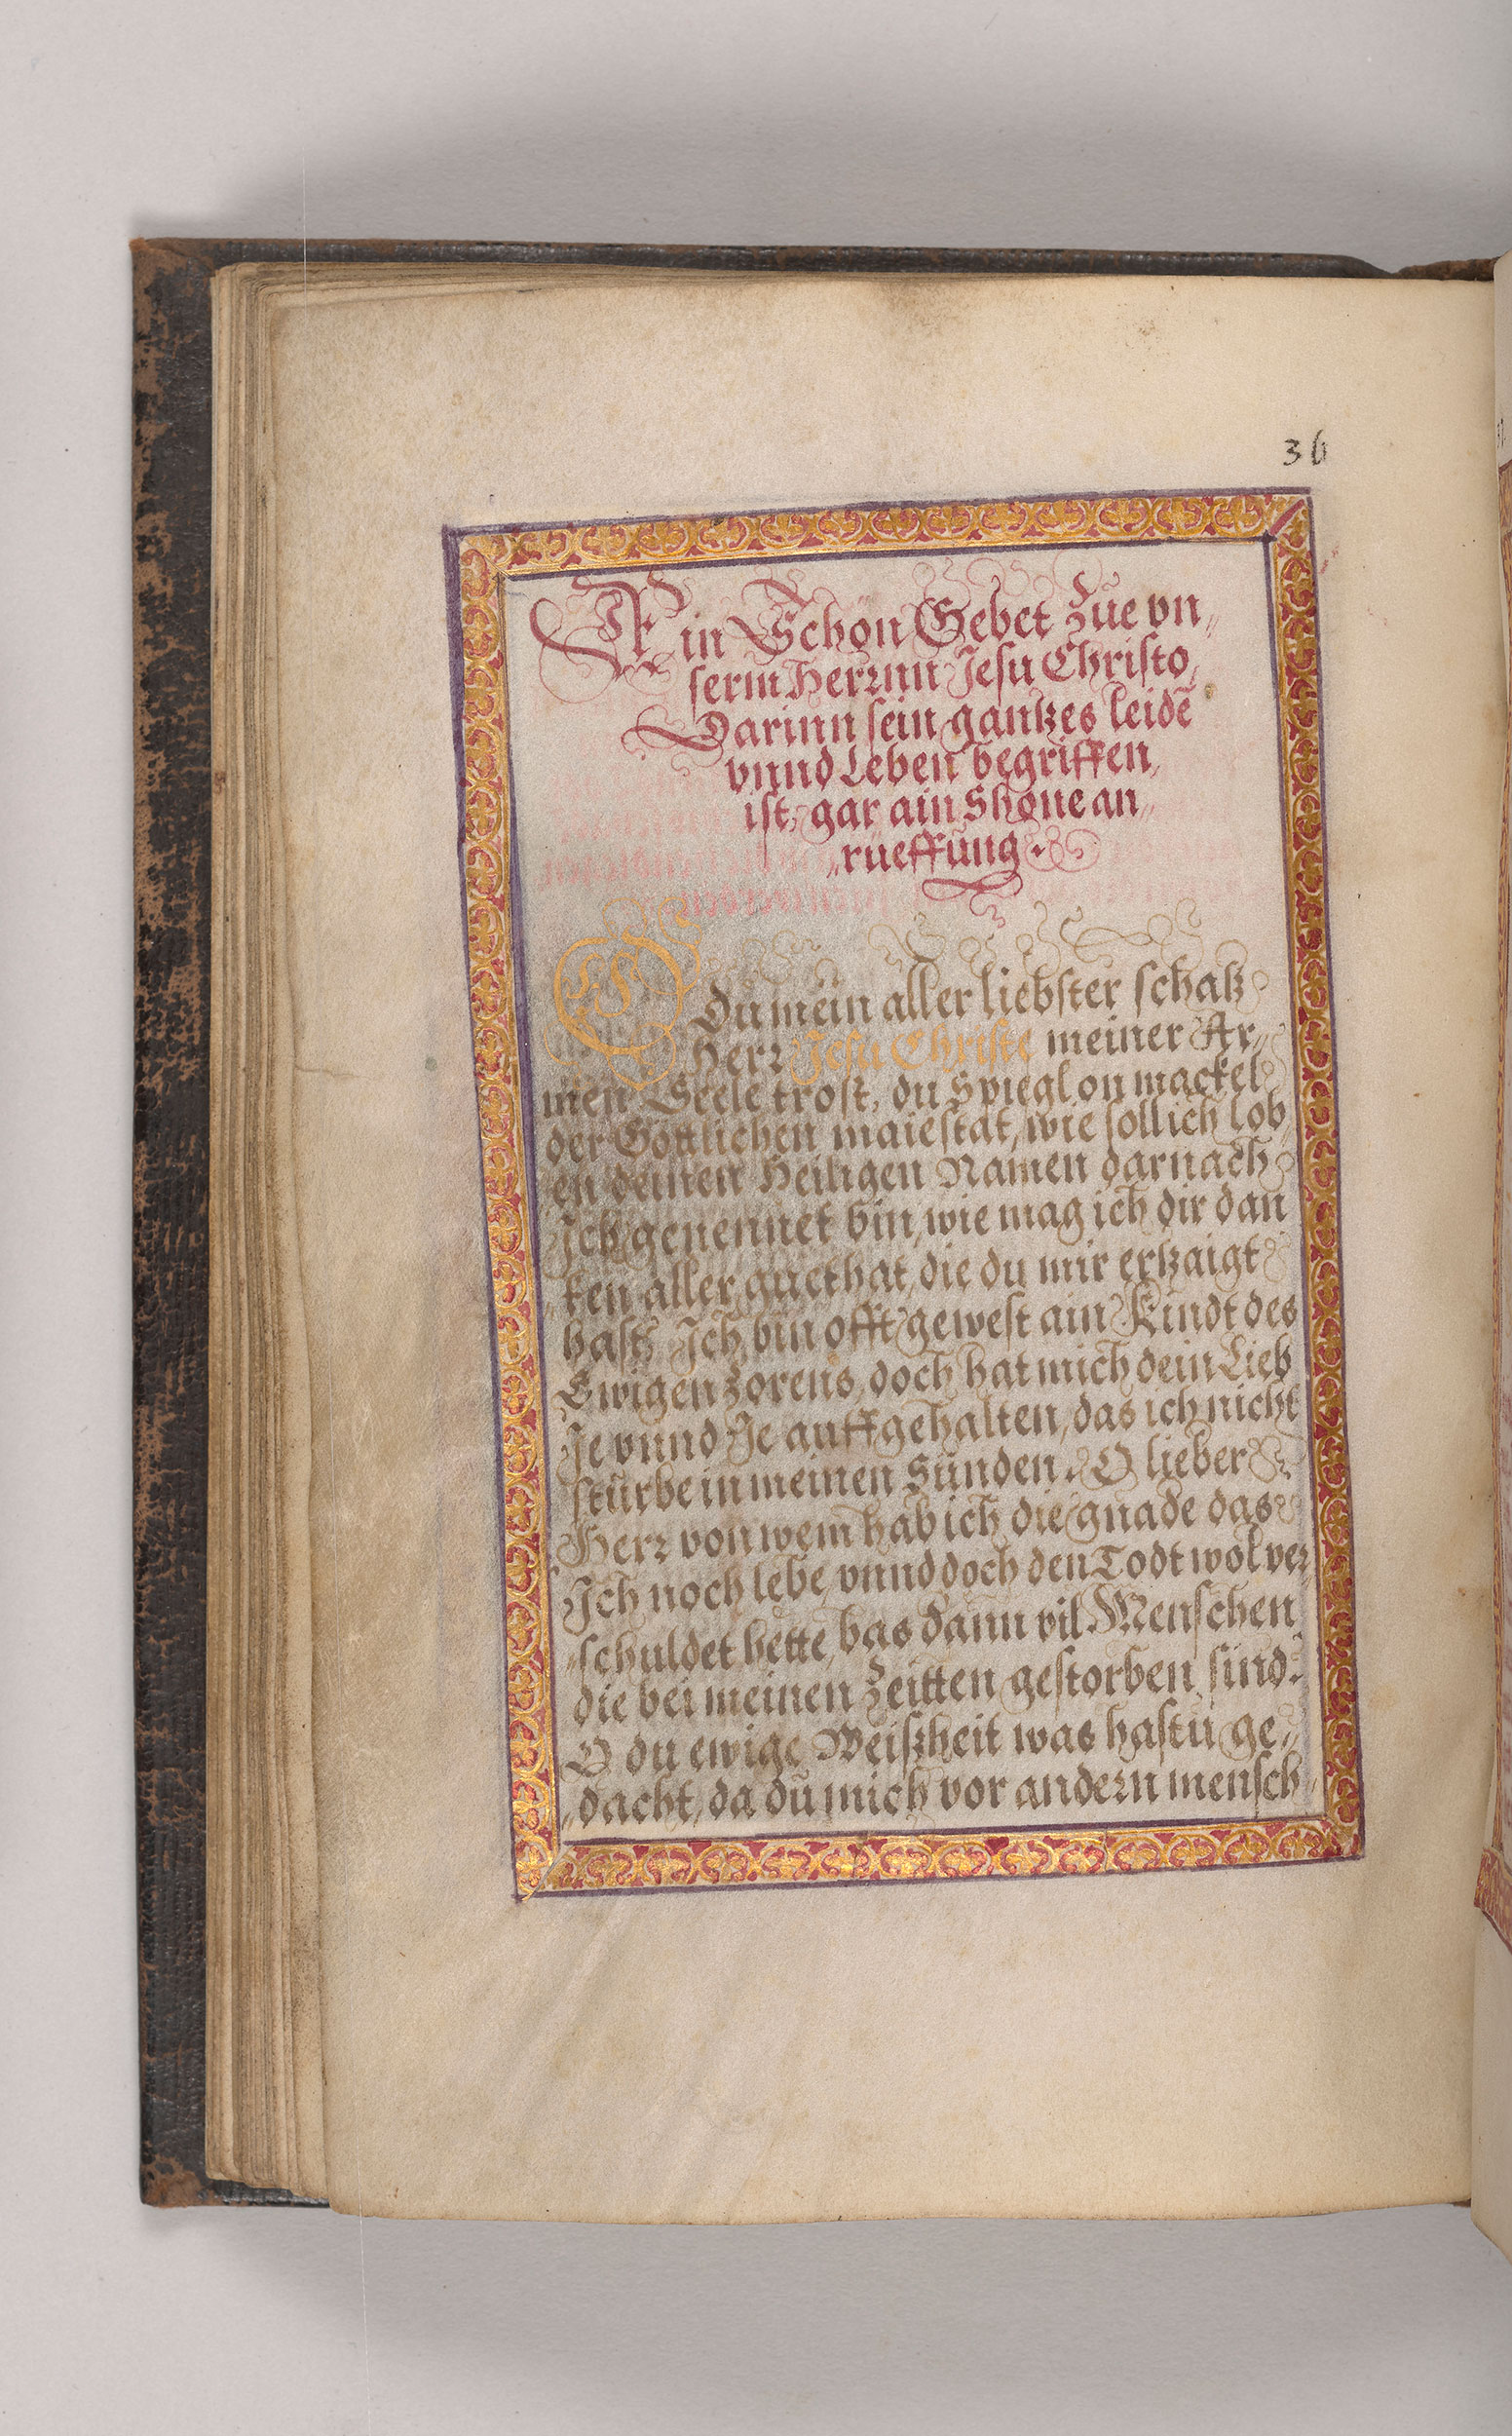 36
Ain Schön Gebet zue vn„
serm Herrnn Jesu Christo,
Darinn sein gantzes leidē
vnnd Leben begriffen,
ist, gar ain Shöne an„
„rüeffung.
O du mein aller liebster schatz
Herr Jesu Christe meiner Ar„
men Seele trost, du Spiegl on mackel
der Göttlichen maiestat, wie soll ich lob„
„en deinen Heiligen Namen darnach
Ich genennet bin, wie mag ich dir dan
„ken aller guethat, die du mir ertzaigt
hast, Ich bin offt gewest ain Kindt des
Ewigen zorens, doch hat mich dein Lieb
Je vnnd Je auffgehalten, das ich nicht
stürbe in meinen Sünden. O lieber
Herr von wem hab ich die gnade das
Ich noch lebe, vnnd doch den Todt wol ver„
„schuldet hette, bas dann vil Menschen
die bei meinen Zeitten gestorben sind.
O du ewige Weißheit was hastu ge„
„dacht, da du mich vor andern mensch„